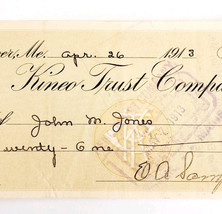 er, Me. Apr. 26 1913
Kineo Trust Compa
John M. Jones
wenty-One
1913